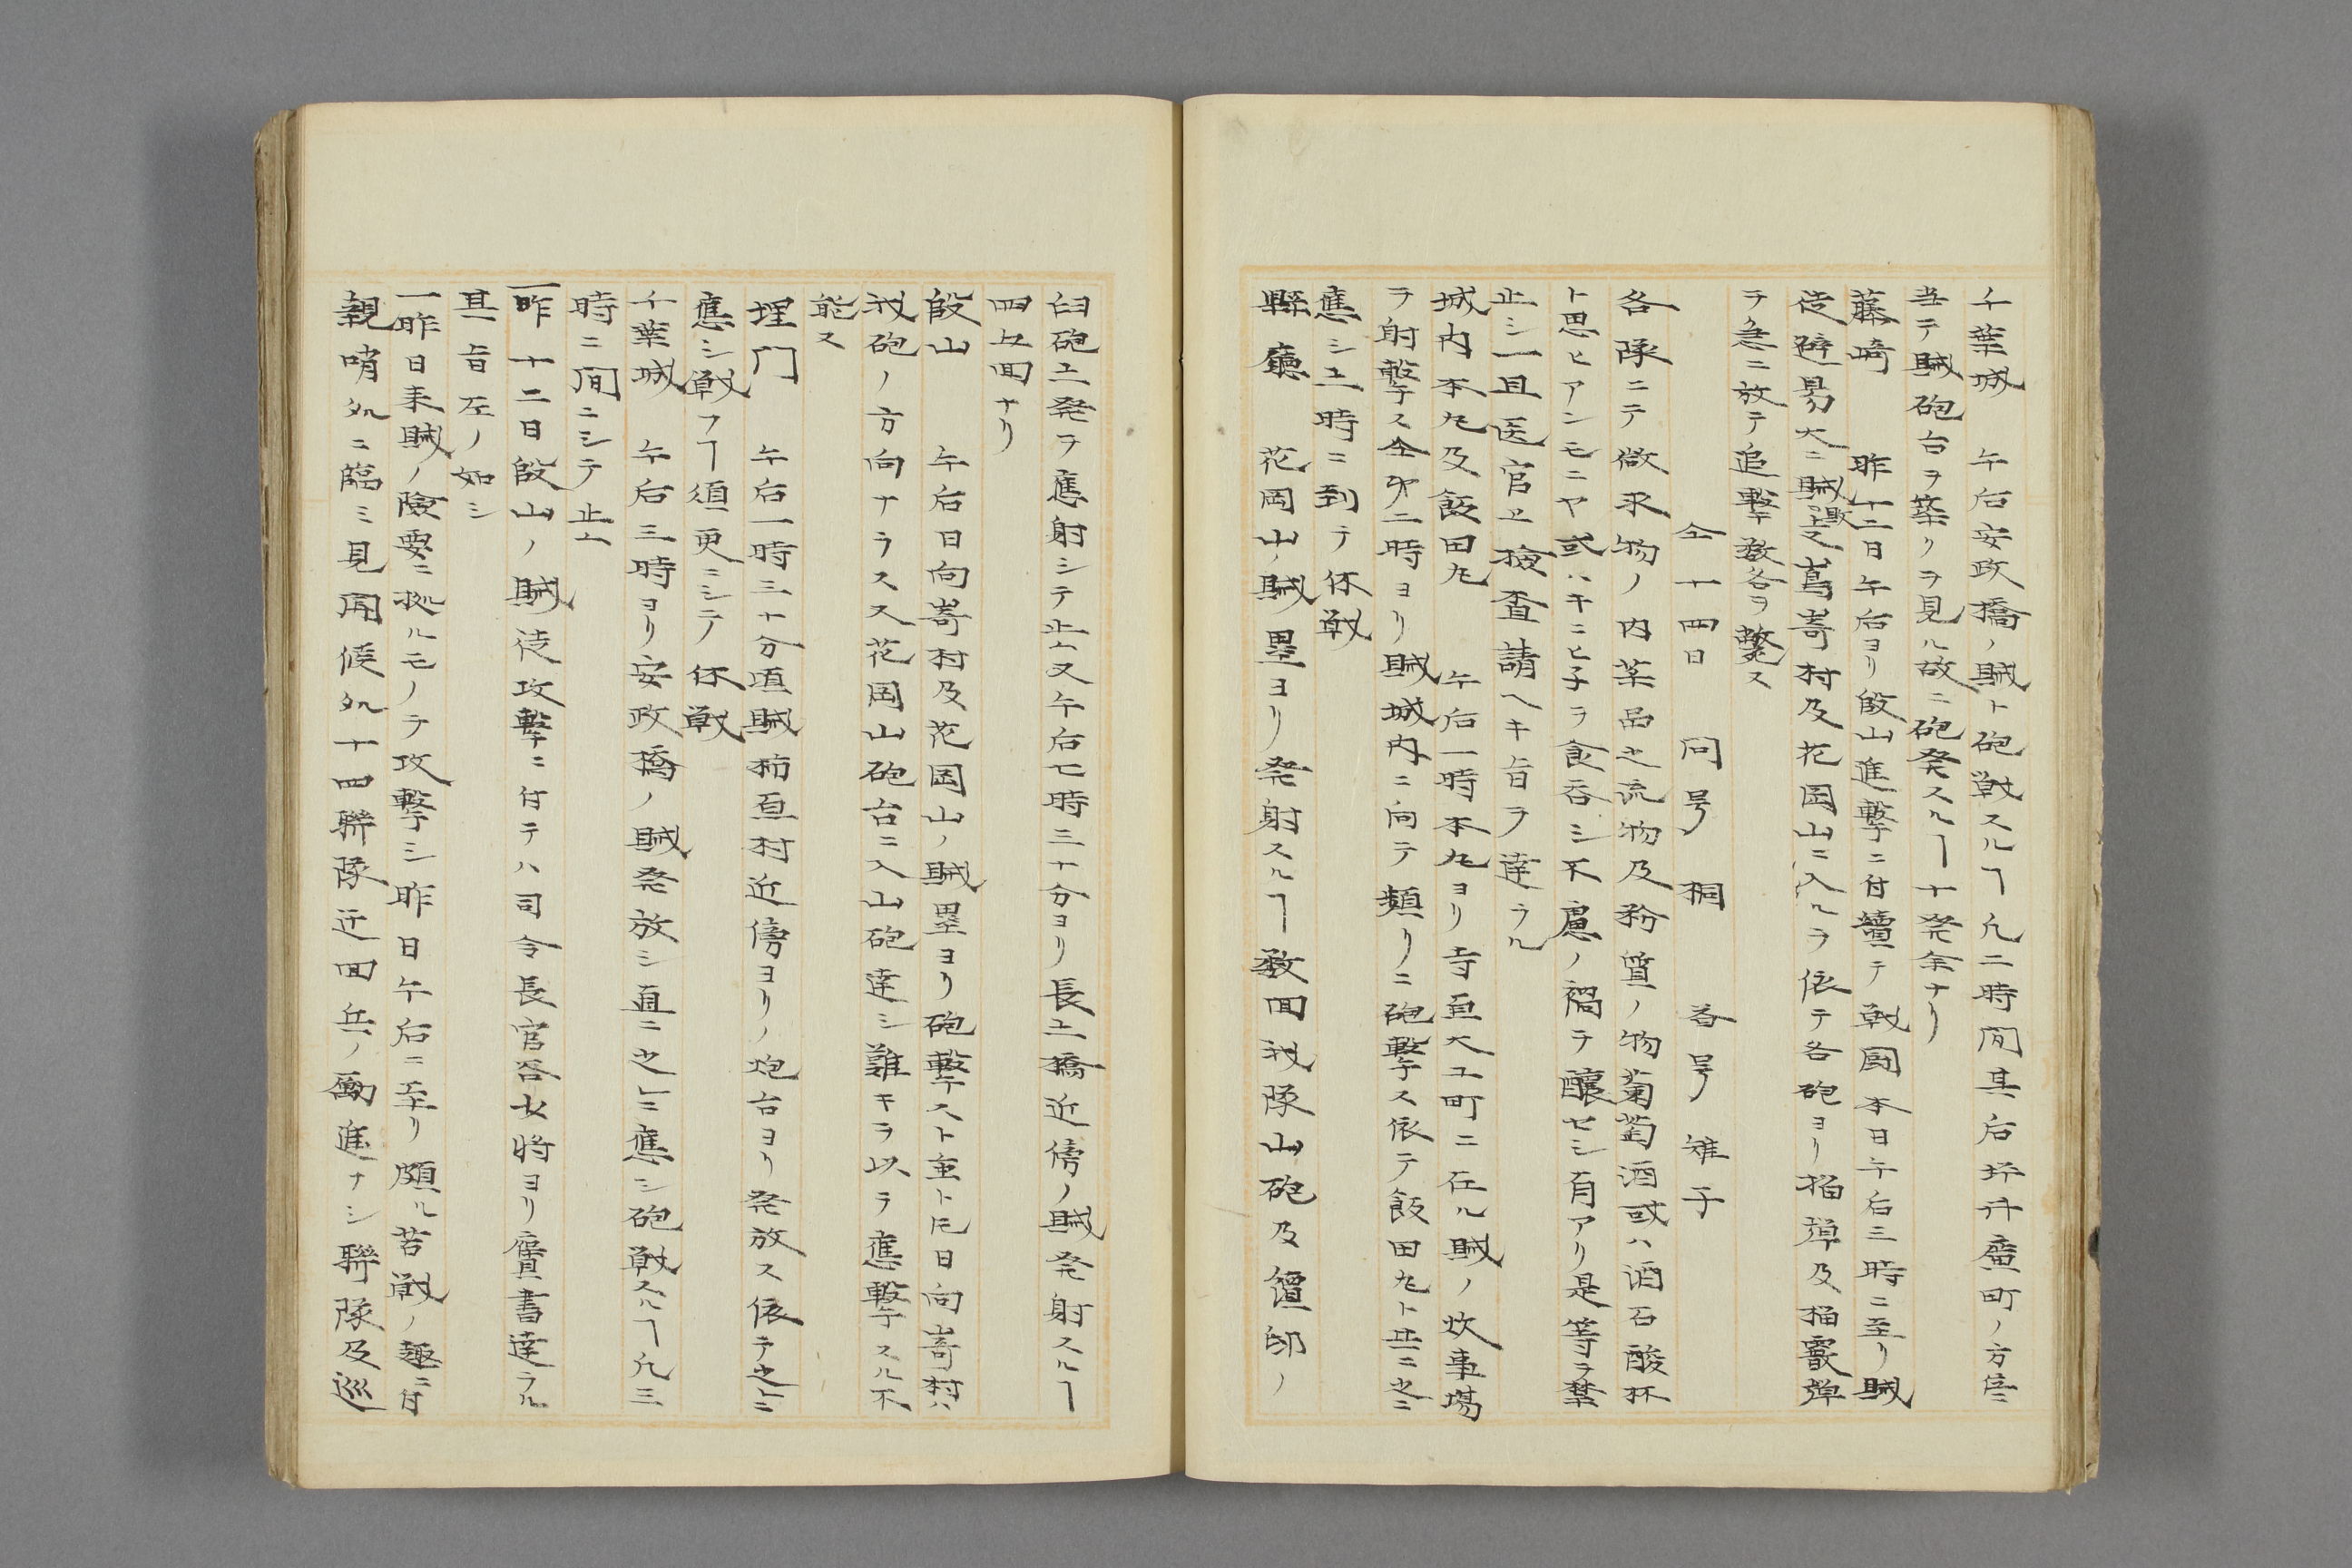 千葉城　午后安政橋ノ賊ト砲戦スルヿ凡二時間其后坪井廣町ノ方位ニ
当テ賊砲台ヲ築クヲ見ル故ニ砲発スルヿ十発余ナリ
藤崎　昨十二日午后ヨリ段山進撃ニ付續テ戦闘本日午后三時ニ至リ賊
徒避易大ニ賊邀之嶌嵜村及花岡山ニ入ルヲ依テ各砲ヨリ榴弾及榴霰弾
ヲ急ニ放テ追撃数名ヲ斃ス
仝十四日　問号　桐　答号　雉子
各隊ニテ徴求物ノ内薬品之流物及粉質ノ物葡萄酒或ハ酒石酸杯
ト思ヒアシモニヤ或ハキニヒ子ヲ食呑シ不慮ノ禍ヲ醸セシ有アリ是等ヲ禁
止シ一且医官ヱ検査請ヘキ旨ヲ達ラル
城内本丸及飯田丸　午后一時本丸ヨリ寺原大工町ニ在ル賊ノ炊事場
ヲ射撃ス仝第二時ヨリ賊城内ニ向テ頻リニ砲撃ス依テ飯田丸ト共ニ之ニ
應シ五時ニ到テ休戦
縣廰　花岡山ノ賊塁ヨリ発射スルヿ数回我隊山砲及壇印ノ
臼砲五発ヲ應射シテ止ム又午后七時三十分ヨリ長五橋近傍ノ賊発射スルヿ
四五回ナリ
段山　午后日向嵜村及花岡山ノ賊塁ヨリ砲撃ス卜雖トモ日向嵜村ハ
我砲ノ方向ナラス又花岡山砲台ニ入山砲達シ難キヲ以ラ應撃スル不
能ス
埋門　午后一時三十分頃賊柿原村近傍ヨリノ炮台ヨリ発放ス依テ之ニ
應シ戦フヿ須更ニシテ休戦
千葉城　午后三時ヨリ安政橋ノ賊発放シ直ニ之レニ應シ砲戦スルヿ凡三
時ニ間ニシテ止ム
一昨十二日段山ノ賊徒攻撃ニ付テハ司令長官谷少将ヨリ賞書達ラル
其旨左ノ如シ
一昨日来賊ノ險要ニ拠ルモノヲ攻撃シ昨日午后ニ至リ頗ル苦戦ノ趣ニ付
親哨処ニ臨ミ見聞候処十四聯隊迂回兵ノ勵進ナシ聯隊及巡